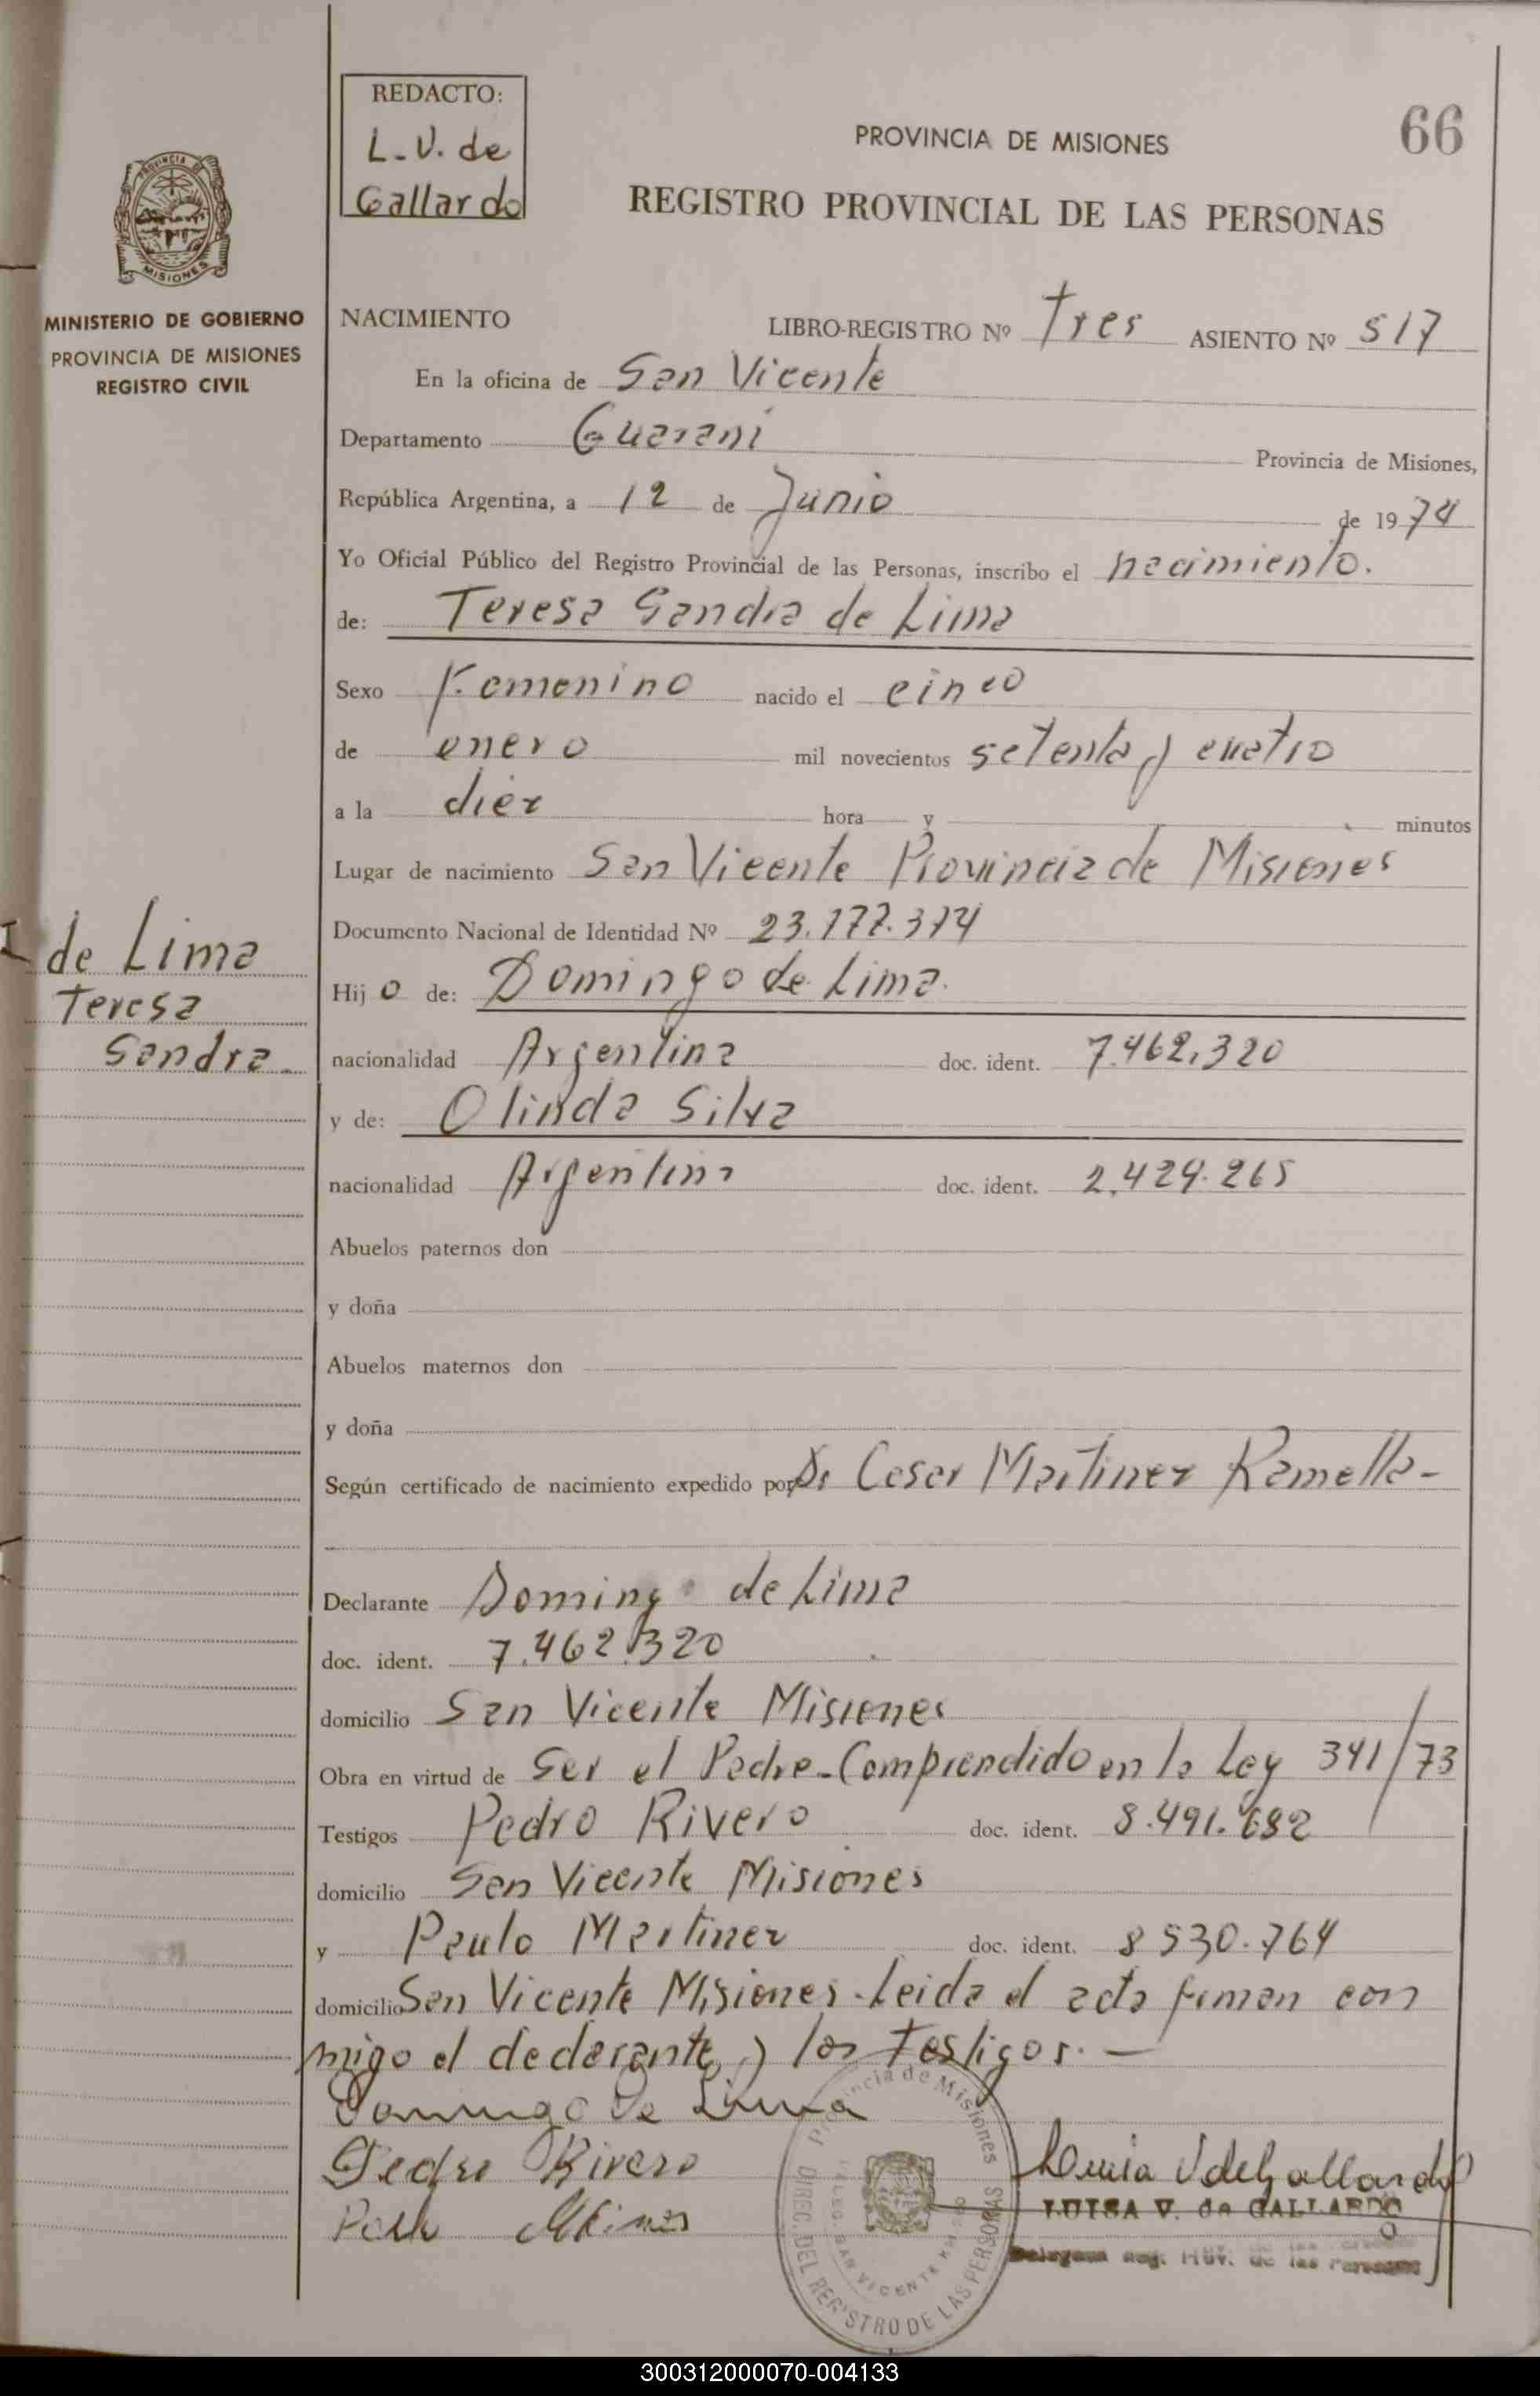 REDACTO:
L. V. de
Gallardo
66
PROVINCIA DE MISIONES
REGISTRO PROVINCIAL DE LAS PERSONAS
PROVINCIA DE
MISIONES
MINISTERIO DE GOBIERNO
PROVINCIA DE MISIONES
REGISTRO CIVIL
NACIMIENTO LIBRO-REGISTRO Nº Tres ASIENTO Nº 517
En la oficina de San Vicente
Departamento Guarani Provincia de Misiones,
República Argentina, a 12 de Junio de 1974
Yo Oficial Público del Registro Provincial de las Personas, inscribo el nacimiento.
de: Teresa Sandra de Lima
Sexo Femenino nacido el cinco
de enero mil novecientos setenta y cuatro
a la diez hora y minutos
Lugar de nacimiento San Vicente Provincia de Misiones
Documento Nacional de Identidad Nº 23.177.314
de Lima
Teresa
Sandra
Hijo de: Domingo de Lima.
nacionalidad Argentina doc. ident. 7.462.320
y de: Olinda Silva
nacionalidad Argentina doc. ident. 2.429.265
Abuelos paternos don
y doña
Abuelos maternos don
y doña
Según certificado de nacimiento expedido por Dr Cesar Martinez Ramella-
Declarante Domingo de Lima
doc. ident. 7.462.320
domicilio San Vicente Misiones
Obra en virtud de Ser el Padre-Comprendido en la Ley 341/73
Testigos Pedro Rivero doc. ident. 8.491.682
domicilio San Vicente Misiones
y Paulo Martinez doc. ident. 8530.764
domicilio San Vicente Misiones-Leida el acta firman con
migo el declarante y los Testigos.-
Domingo De Lima
Pedro Rivero
Luisa V de Gallardo
LUISA V. de GALLARDO
Provincia de Misiones
DIREC. DEL REGISTRO DE LAS PERSONAS
DELEG. SAN VICENTE
300312000070-004133